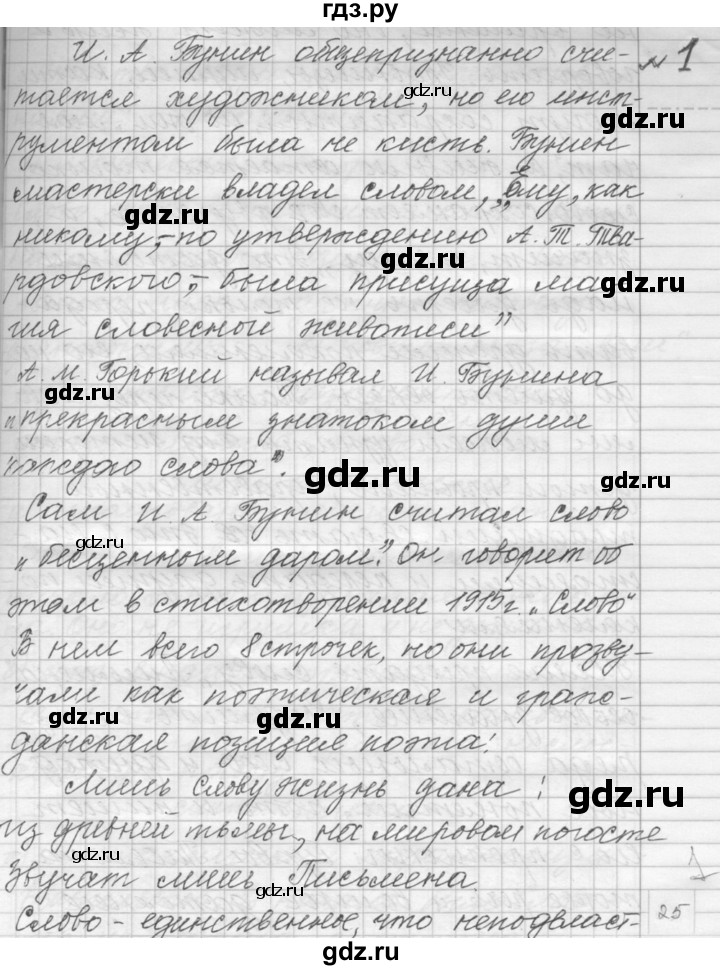 гдз.ру
И. А. Бунин общепризнанно счи-
№ 1
тается художником, но его инст-
рументом была не кисть. Бунин
мастерски владел словом, „ему, как
никому, – по утверждению А. Т. Тва-
рдовского, – была присуща ма-
гия словесной живописи"
А. М. Горький называл И. Бунина
„прекрасным знатоком души
каждого слова".
Сам И. А. Бунин считал слово
„бесценным даром". Он говорит об
этом в стихотворении 1915 г. „Слово"
В нем всего 8 строчек, но они прозву-
чали как поэтическая и граж-
данская позиция поэта:
Лишь слову жизнь дана:
из древней тьмы, на мировом погосте
Звучат лишь Письмена.
Слово - единственное, что неподвласт-
25
gdz.ru
gdz.ru
gdz.ru
gdz.ru
gdz.ru
gdz.ru
gdz.ru
gdz.ru
gdz.ru
gdz.ru
gdz.ru
gdz.ru
gdz.ru
gdz.ru